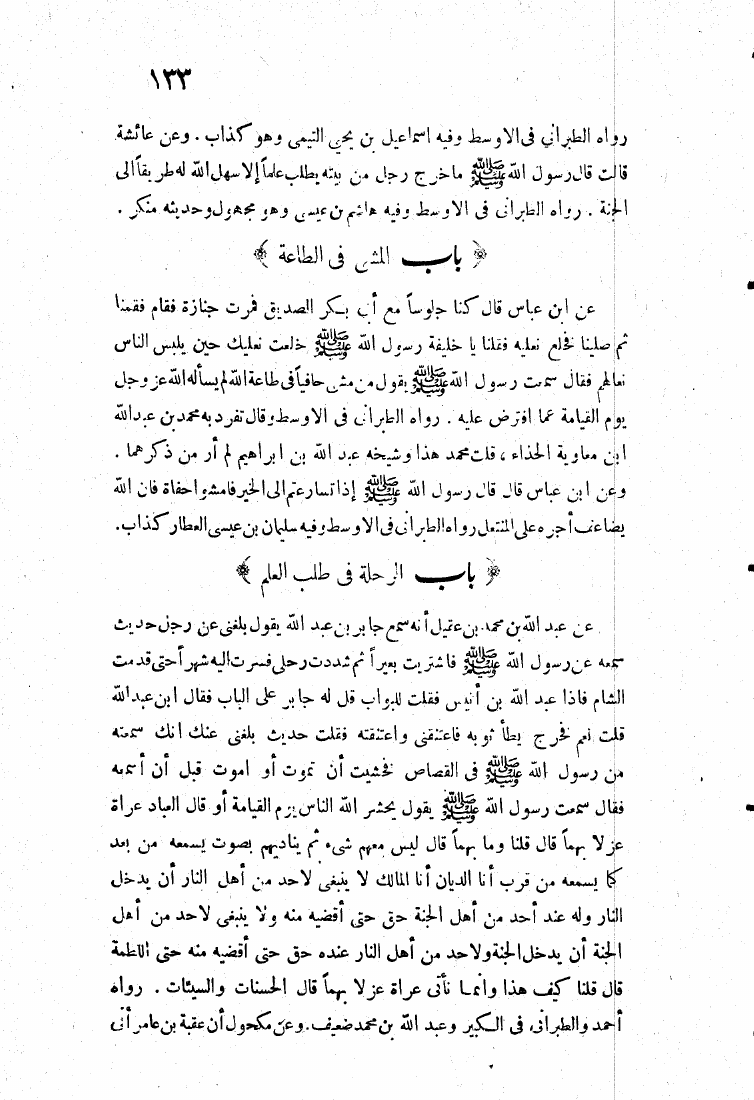 ١٣٣
رواه الطبراني فى الاوسط وفيه اسماعيل بن يحيى التيمى وهو كذاب . وعن عائشة
قالت قال رسول الله ﷺ ماخرج رجل من بيته يطلب علماً إلا سهل الله له طريقاً الى
الجنة . رواه الطبرانى فى الاوسط وفيه هاشم بن عيسى وهو مجهول وحديثه منكر .
﴿ باب المشى فى الطاعة ﴾
عن ابن عباس قال كنا جلوساً مع أبى بكر الصديق فمرت جنازة فقام فقمنا
ثم صلينا فخلع نعليه فقلنا يا خليفة رسول الله ﷺ خلعت نعليك حين يلبس الناس
نعالهم فقال سمعت رسول الله ﷺ يقول من مشى حافياً فى طاعة الله لم يسأله الله عز وجل
يوم القيامة عما افترض عليه . رواه الطبرانى فى الاوسط وقال تفرد به محمد بن عبدالله
ابن معاوية الحذاء ، قلت محمد هذا وشيخه عبد الله بن ابراهيم لم أر من ذكرهما .
وعن ابن عباس قال قال رسول الله ﷺ إذا تسارعتم الى الخير فامشوا حفاة فان الله
يضاعف أجره على المنتعل رواه الطبرانى فى الاوسط وفيه سليمان بن عيسى العطار كذاب.
﴿ باب الرحلة فى طلب العلم ﴾
عن عبد الله بن محمد بن عقيل أنه سمع جابر بن عبد الله يقول بلغنى عن رجل حديث
سمعه عن رسول الله ﷺ فاشتريت بعيراً ثم شددت رحلى فسرت اليه شهراً حتى قدمت
الشام فاذا عبد الله بن أنيس فقلت للبواب قل له جابر على الباب فقال ابن عبدالله
قلت نعم فخرج يطأ ثوبه فاعتنقنى واعتنقته فقلت حديث بلغنى عنك انك سمعته
من رسول الله ﷺ فى القصاص فخشيت أن تموت أو اموت قبل أن أسمعه
فقال سمعت رسول الله ﷺ يقول يحشر الله الناس يوم القيامة أو قال العباد عراة
عزلا بهماً قال قلنا وما بهماً قال ليس معهم شىء ثم يناديهم بصوت يسمعه من بعد
كما يسمعه من قرب أنا الديان أنا المالك لا ينبغى لاحد من أهل النار أن يدخل
النار وله عند أحد من أهل الجنة حق حتى أقضيه منه ولا ينبغى لاحد من أهل
الجنة أن يدخل الجنة ولاحد من أهل النار عنده حق حتى أقضيه منه حتى اللطمة
قال قلنا كيف هذا وانما نأتى عراة عزلا بهماً قال الحسنات والسيئات . رواه
أحمد والطبرانى فى الكبير وعبد الله بن محمد ضعيف . وعن مكحول أن عقبة بن عامر أتى